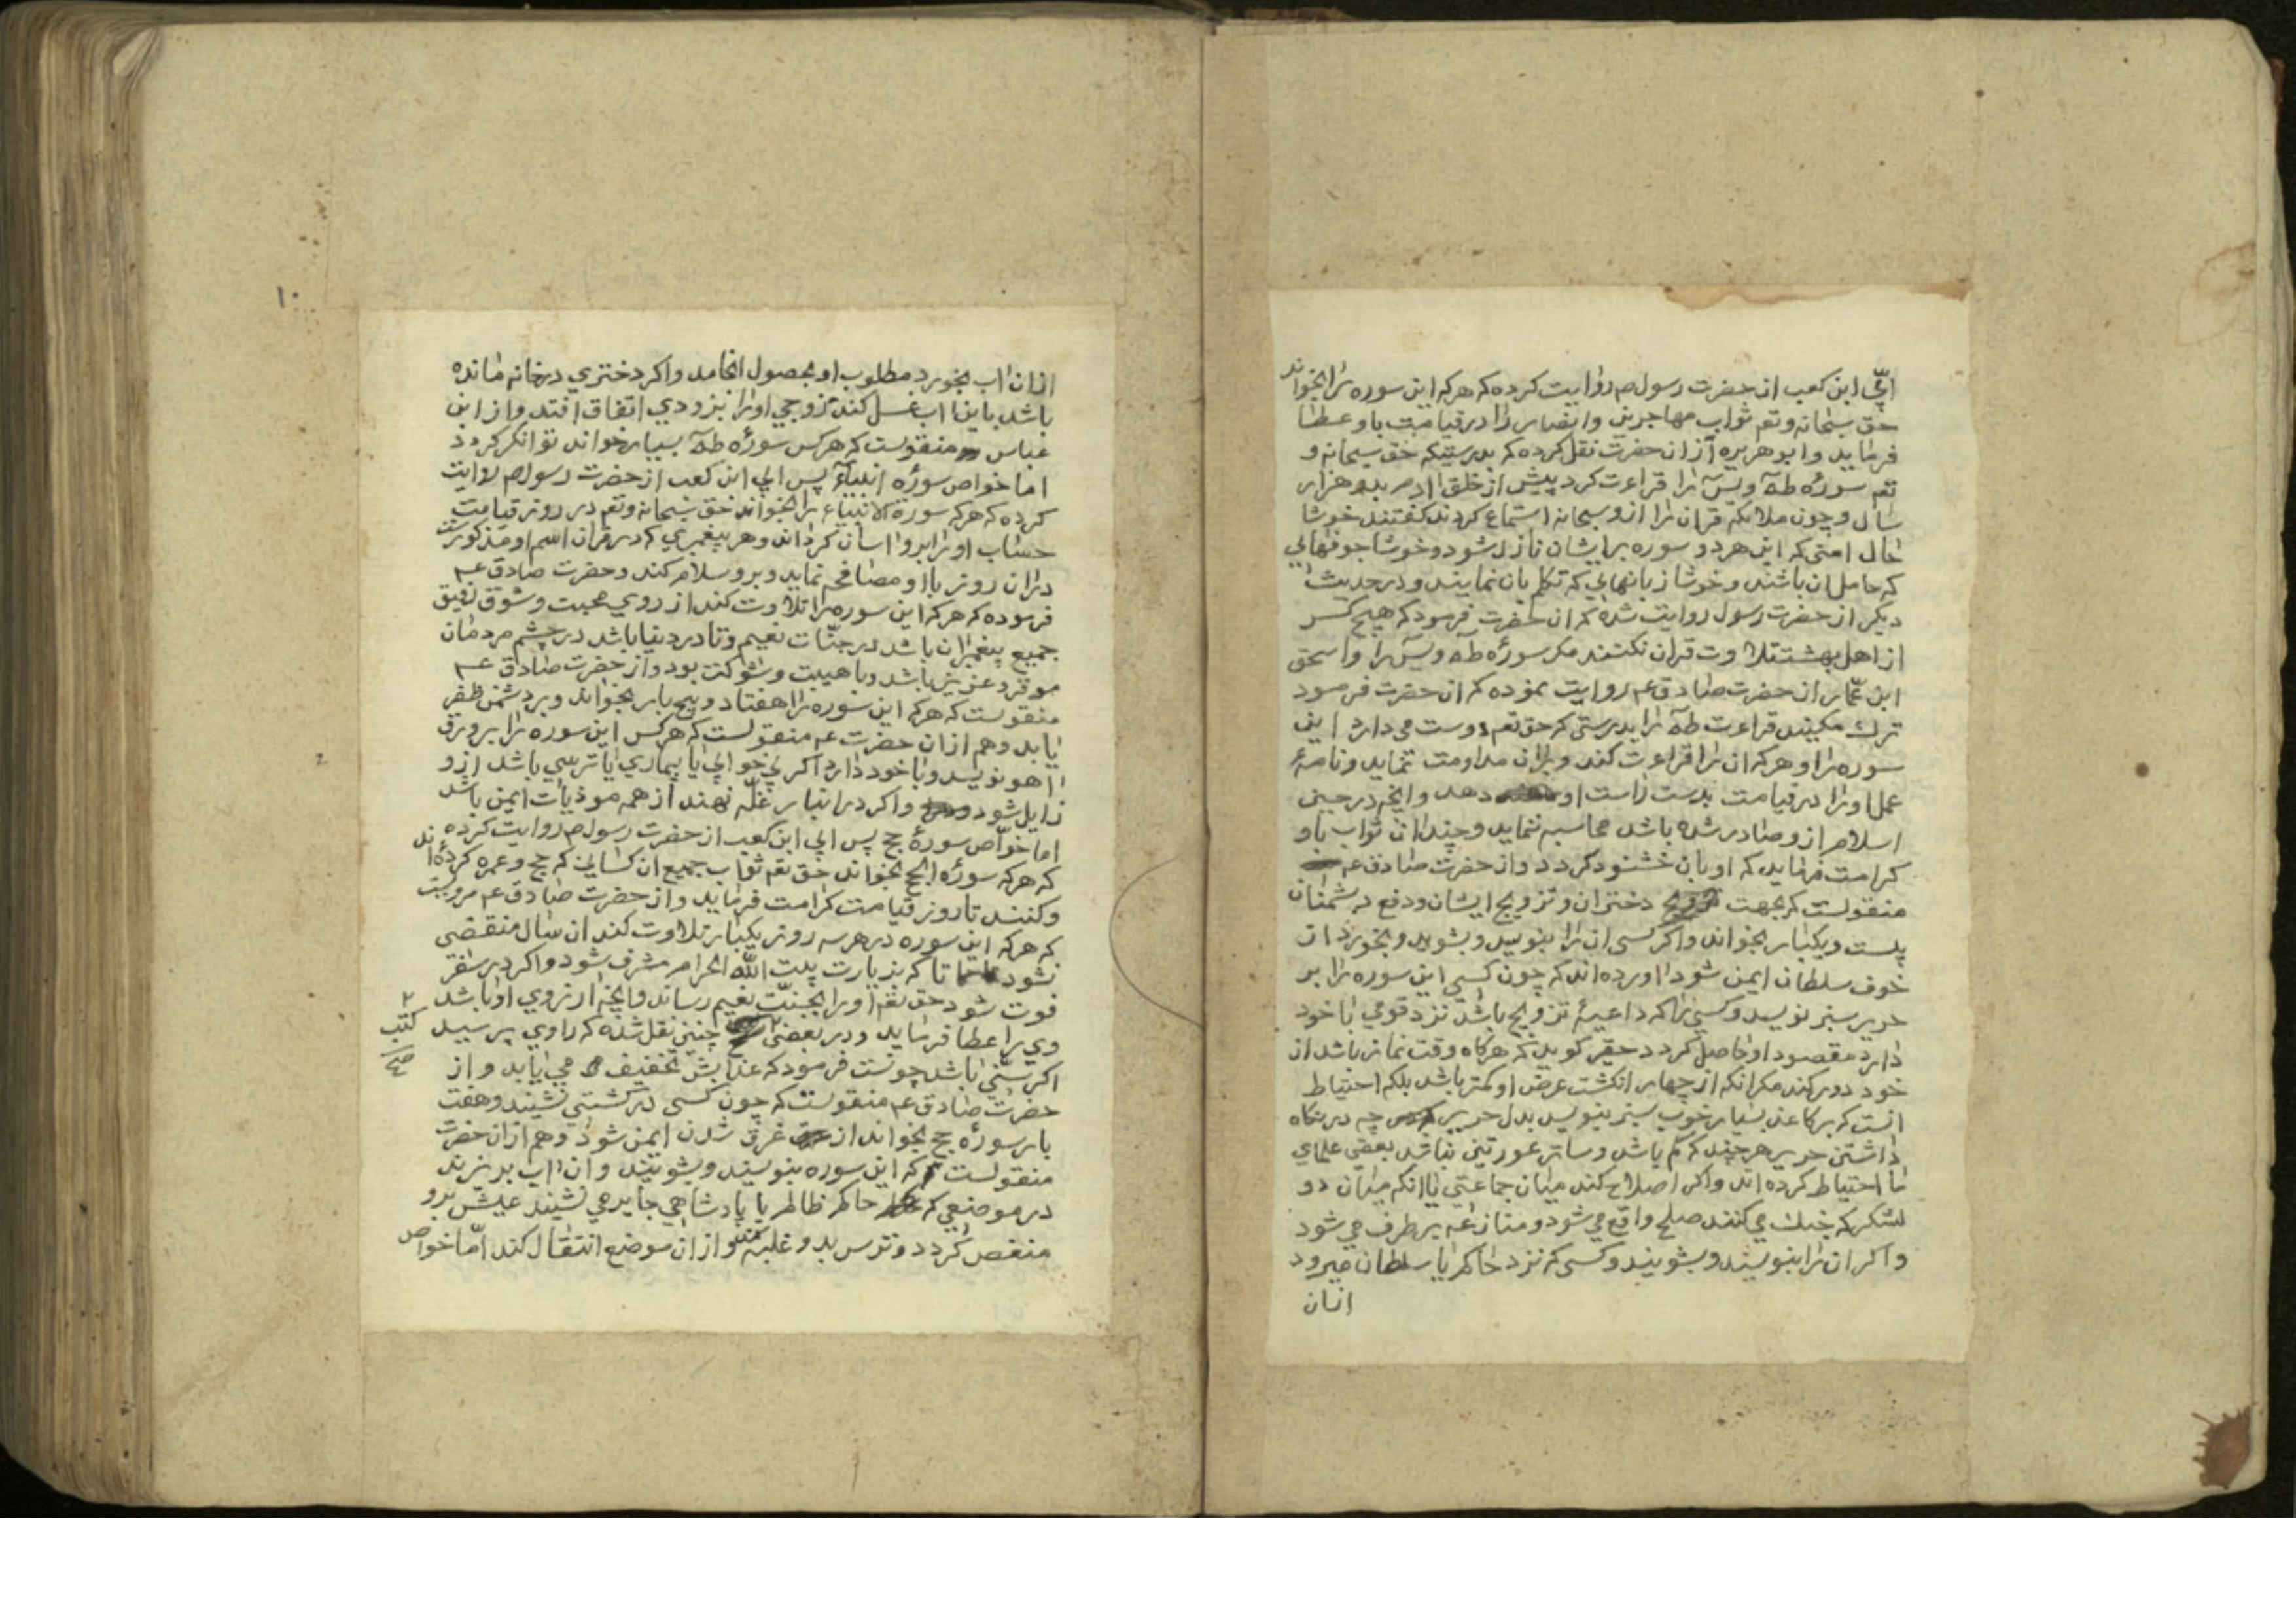 ابّي ابن كعب از حضرت رسول ص روايت كرده كه هركه اين سوره را بخواند
حق سبحانه وتع ثواب مهاجرين وانصار را در قيامت باو عطا
فرمايد وابو هريره از ان حضرت نقل كرده كه بدرستيكه حق سبحانه و
تع سوره طه ويس را قراءت كرد پيش از خلق ادم بدو هزار
سال وچون ملائكه قران را از و سبحانه استماع كردند كفتند خوشا
حال امتى كه اين هردو سوره برايشان نازل شود وخوشا جوفهايي
كه حامل ان باشند وخوشا زبانهايي كه تكلم بان نمايند ودر حديث
ديكر از حضرت رسول روايت شده كه ان حضرت فرمود كه هيچ كس
از اهل بهشت تلاوت قران نكنند مكر سوره طه ويس را واسحق
ابن عمّار از حضرت صادق عم روايت نموده كه ان حضرت فرمود
ترك مكنيد قراءت طه را بدرستي كه حق تع دوست مى دارد اين
سوره را و هركه ان را قراءت كند وبران مداومت نمايد ونامۀ
عمل او را در قيامت بدست راست او دهد وانچه در حين
اسلام از و صادر شده باشد محاسبه ننمايد وچندان ثواب باو
كرامت فرمايد كه او بان خشنود كردد واز حضرت صادق عم
منقولست كه بجهت دختران وتزويج ايشان ودفع دشمنان
بيست ويكبار بخواند واكر كسى ان را بنويسد وبشويد وبخورد از
خوف سلطان ايمن شود اورده اند كه چون كسي اين سوره را بر
حرير سبز نويسد وكسي را كه داعيۀ تزويج باشد نزد قومي با خود
دارد مقصود او حاصل كردد حقير كويد كه هركاه وقت نماز باشد از
خود دور كند مكر انكه از چهار انكشت عرض او كمتر باشد بلكه احتياط
انست كه بر كاغذ بسيار خوب سبز بنويسد بدل حرير چه در نكاه
داشتن حرير هرچند كه كم باشد وساتر عورتين نباشد بعضى علماي
ما احتياط كرده اند واكر اصلاح كند ميان جماعتي يا انكه ميان دو
لشكر كه جنك مي كنند صلح واقع مي شود ومنازعه بر طرف مي شود
واكر ان را بنويسند وبشويند وكسى كه نزد حاكم يا سلطان ميرود
ازان
۱۰
ازان اب بخورد مطلوب او بحصول انجامد واكر دختري در خانه مانده
باشد باين اب غسل كند تزوجي او را بزودي اتفاق افتد واز ابن
عباس منقولست كه هركس سوره طه بسيار خواند توانكر كردد
اما خواص سوره انبياء پس ابي ابن كعب از حضرت رسول ص روايت
كرده كه هركه سورة الانبياء را بخواند حق سبحانه وتع در روز قيامت
حساب او را برو اسان كرداند وهر پيغمبري كه در قران اسم او مذكورست
دران روز با او مصافحه نمايد وبرو سلام كند وحضرت صادق عم
فرموده كه هركه اين سوره را تلاوت كند از روي محبت وشوق رفيق
جميع پيغمبران باشد در جنّات نعيم وتا در دنيا باشد در چشم مردمان
موقر وعزيز باشد وبا هيبت وشوكت بود واز حضرت صادق عم
منقولست كه هركه اين سوره را هفتاد وپنج بار بخواند وبر دشمن ظفر
يابد وهم ازان حضرت عم منقولست كه هركس اين سوره را بر ورق
اهو نويسد وبا خود دارد اكر بي خوابي يا بيماري يا ترسي باشد ازو
زايل شود واكر در انبار غلّه نهند از همه موذيات ايمن باشد
اما خواص سورۀ حج پس ابي ابن كعب از حضرت رسول ص روايت كرده
كه هركه سوره الحج بخواند حق تع ثواب جميع ان كسانى كه حج وعمره كرده اند
وكنند تا روز قيامت كرامت فرمايد واز حضرت صادق عم مرويست
كه هركه اين سوره در هر سه روز يكبار تلاوت كند ان سال منقضى
نشود تا كه بزيارت بيت الله الحرام مشرف شود واكر در سفر
فوت شود حق تع او را بجنّت نعيم رساند وانچه ارزوي او باشد
وي را عطا فرمايد ودر بعضى چنين نقل شده كه راوي پرسيد
كتب
صح
اكر سنّي باشد چونست فرمود كه عذابش تخفيف مي يابد واز
حضرت صادق عم منقولست كه چون كسى در كشتي نشيند وهفت
بار سوره حج بخواند از غرق شدن ايمن شود وهم ازان حضرت
منقولست كه اين سوره بنويسند وبشويند وان اب بريزند
در موضعي كه حاكم ظالم يا پادشاهي جاير مي نشيند عيش برو
منغص كردد وترس بدو غلبه كند واز ان موضع انتقال كند امّا خواص